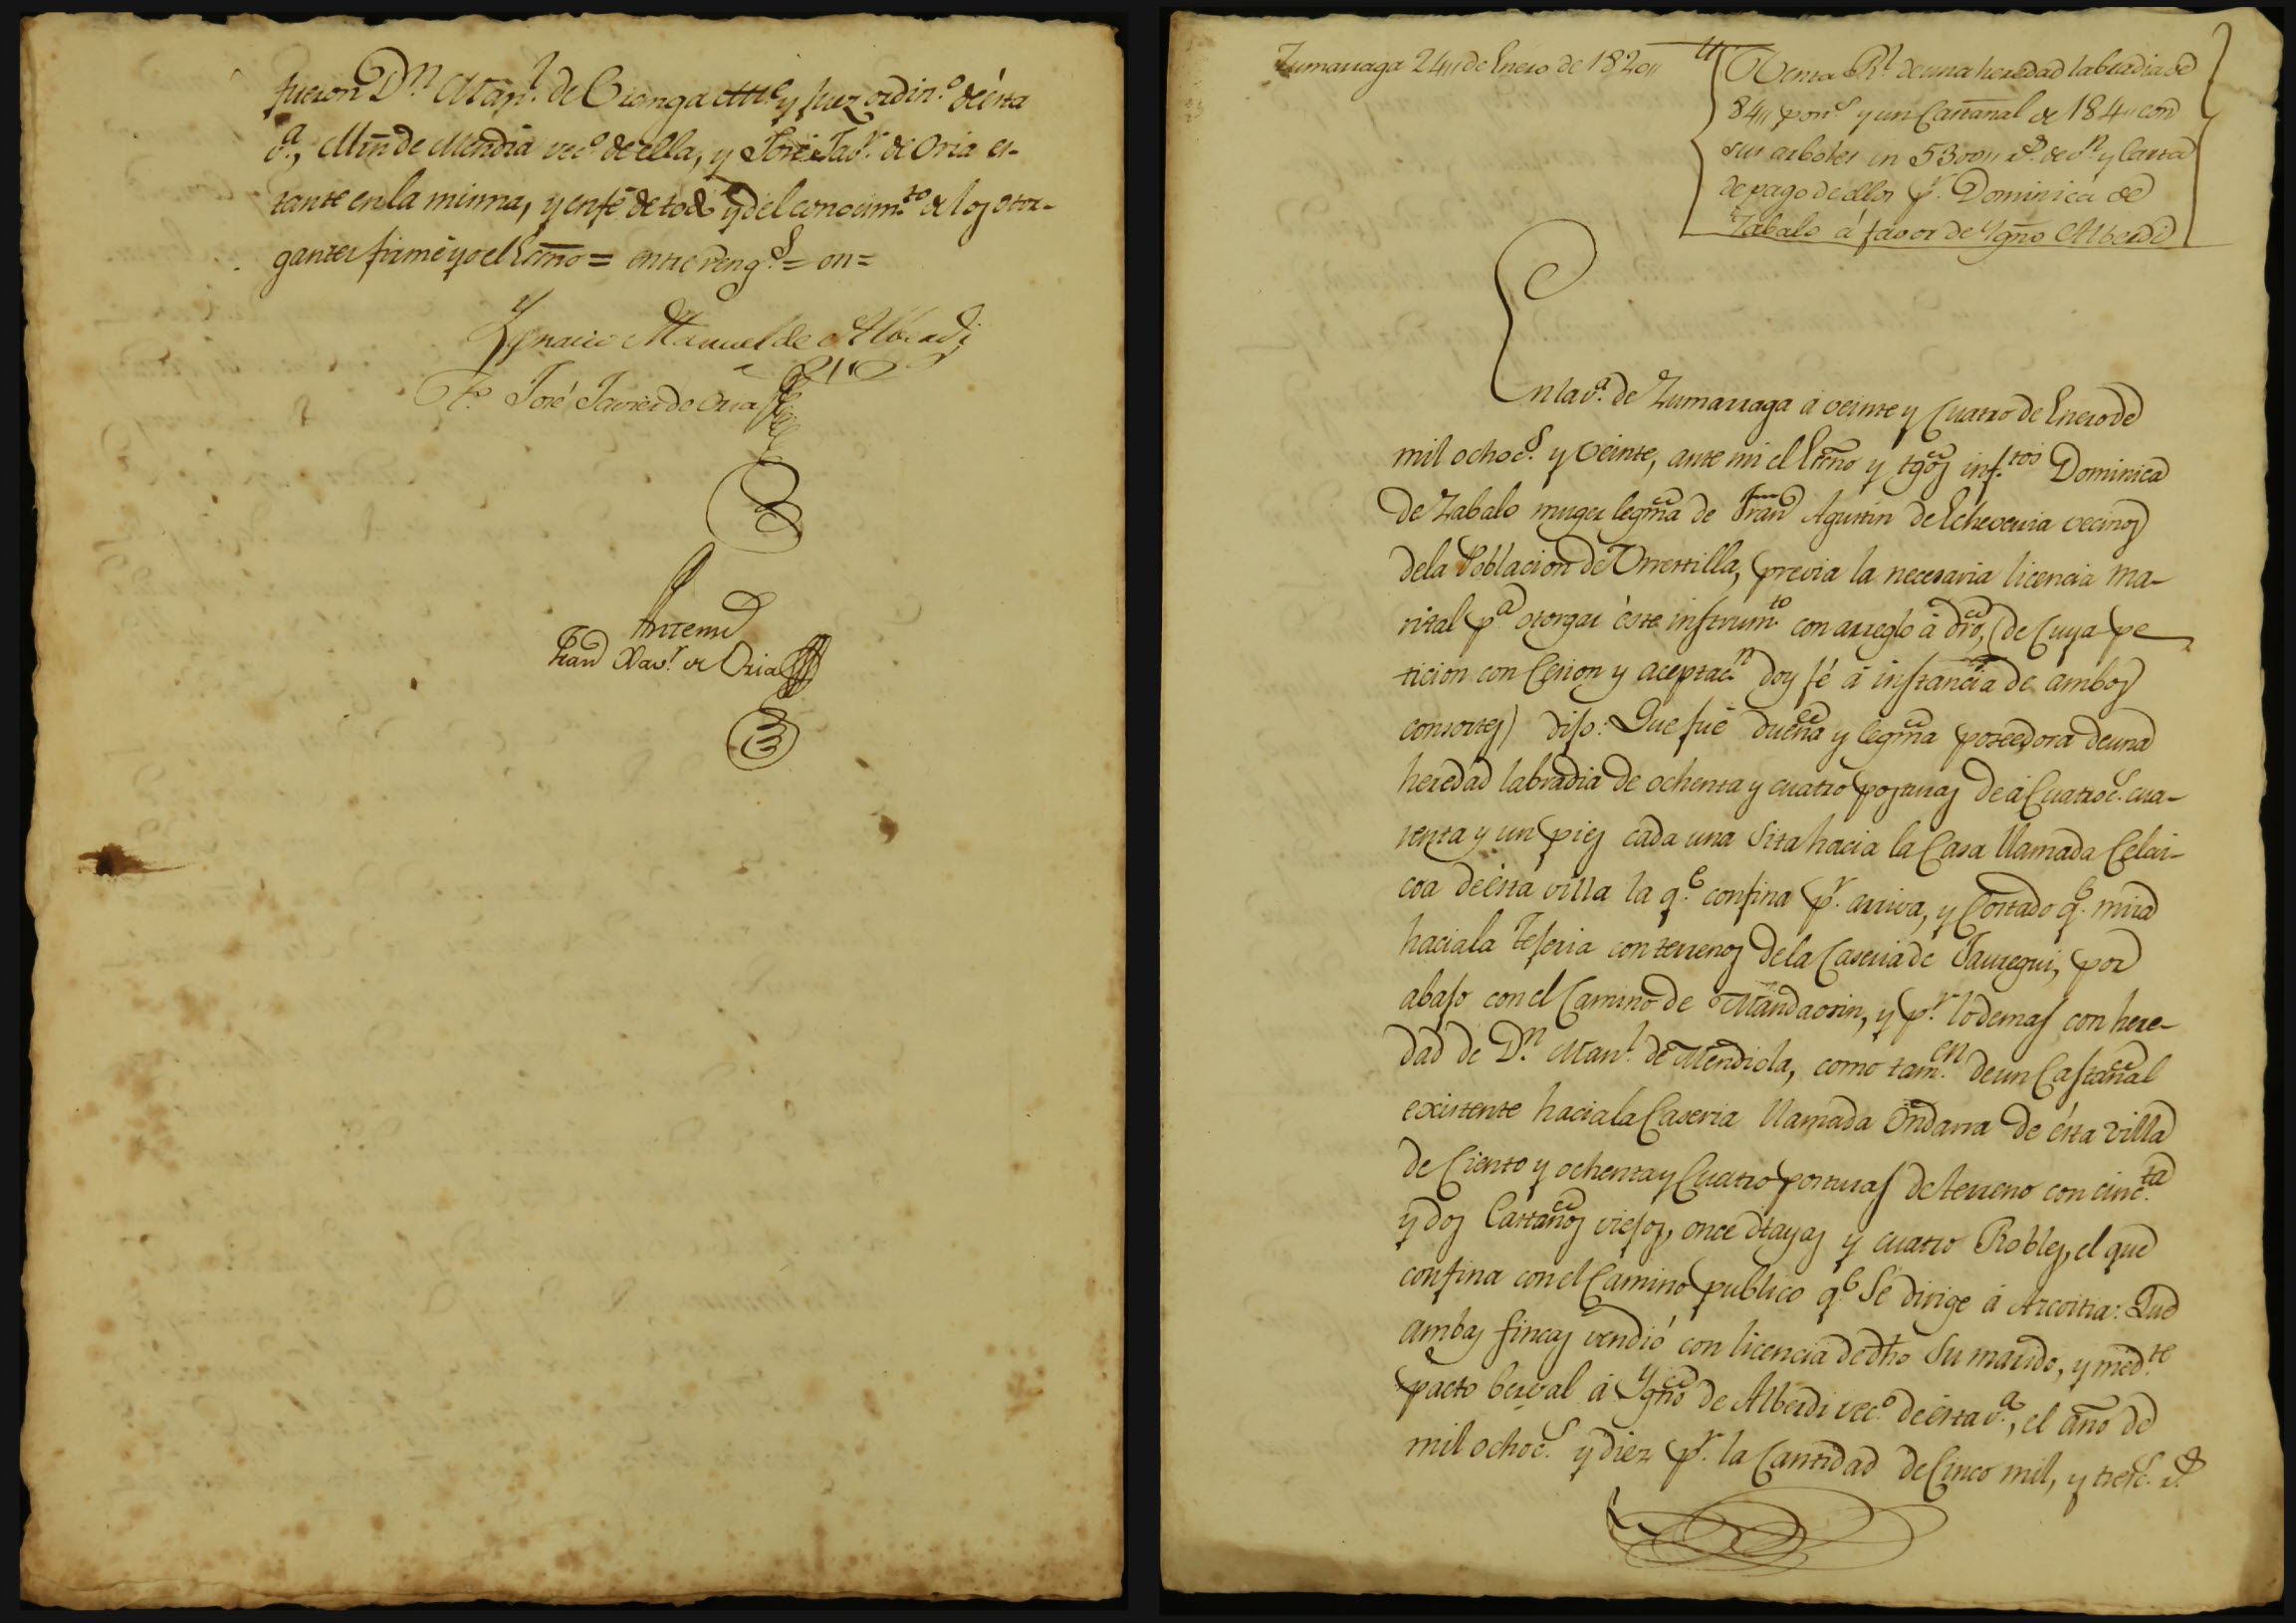 fueron Dn. Man.l de Oranga Alc.e y Juez ordin.o de ésta
v.a, Mñ de Mendia vec.o de ella, y José Jav.r de Oria es-
tante en la misma, y en fé de todo y del conocim.to de los otor-
gantes firmé yo el Ecrño = entre reng.s = on =
Ygnacio Manuel de Alberdi
T.o José Javier de Oria
Antemi
Fran Xav.r de Oria
Zumarraga 24,, de Enero de 1820,,
Venta Rl. de una heredad labradia de
84,, pos.s y un Castañal de 184,, con
sus arboles en 5300,, r.s de v.n y Carta
de pago de ellos p.r Dominica de
Zabalo á favor de Ygño Alberdi
En la v.a de Zumarraga a veinte y Cuatro de Enero de
mil ochoc.s y veinte, ante mi el Ecrño y tgõs inf.tos Dominica
de Zabalo muger legma de Fran Agustin de Echeverria vecinos
de la Poblacion de Urrestilla, previa la necesaria licencia ma-
rital p.a otorgar éste instrum.to con arreglo á dro, (de Cuya pe
ticion concesion y aceptac.n doy fé á instancia de ambos
consortes) dijo: Que fué dueña y legma poseedora de una
heredad labradia de ochenta y cuatro posturas de á Cuatroc.s cua-
renta y un pies cada una Sita hacia la Casa llamada Celai-
coa de ésta villa la q.e confina p.r arriva, y Costado q.e mira
hacia la Tejeria con terrenos de la Caseria de Jauregui, por
abajo con el Camino de Mandaorin, y p.r lo demas con here-
dad de D.n Man.l de Mendiola, como tam.en de un Castañal
existente hacia la Caseria llamada Ondarra de ésta Villa
de Ciento y ochenta y Cuatro posturas de terreno con cinc.ta
y dos Castaños viejos, once Ayas y cuatro Robles, el que
confina con el Camino publico q.e Se dirige á Azcoitia: Que
ambas fincas vendió con licencia de dho Su marido, y med.te
pacto berval á Ygño de Alberdi vec.o de ésta v.a, el año de
mil ochoc.s y diez p.r la Cantidad de Cinco mil, y tresc.s r.s